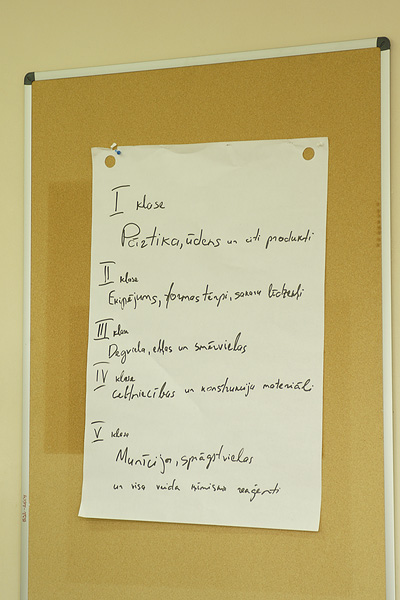 I klase
Pārtika, ūdens un citi produkti
II klase
Ekipējums, formas tērpi, sakaru līdzekļi
III klase
Degviela, eļļas un smērvielas
IV klase
Celtniecības un konstrukciju materiāli
V klase
Munīcija, sprāgstvielas
un visa veida ķīmiskie reaģenti